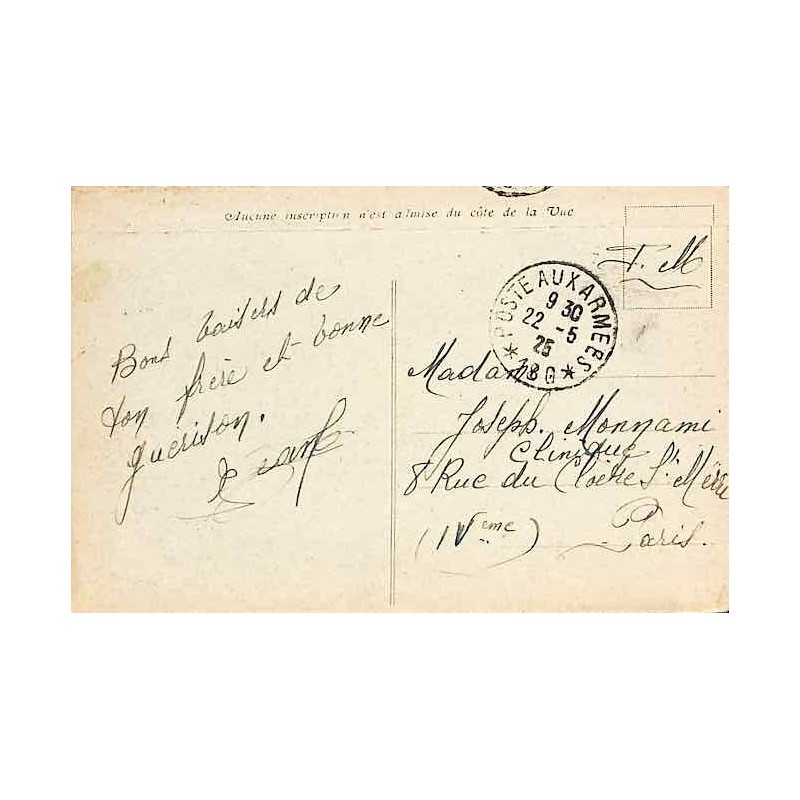 Aucune inscription n'est admise du côté de la Vue
F. M
POSTE AUX ARMEES
9 30
22 - 5
25
Bons baisers de
ton frère et bonne
guérison.
Madame
Joseph. Monnami
Clinique
8 Rue du Cloitre St Merri
(IVeme) Paris.